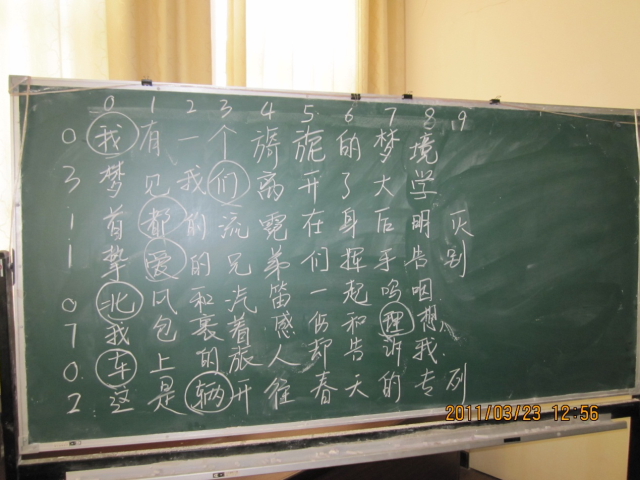 0 1 2 3 4 5 6 7 8 9
0 我有一个旖旎的梦境
3 梦见我们离开了大学
1 首都的流霓在身后明灭
1 挚爱的兄弟们挥手告别
0 北风和汽笛一起呜咽
7 我包裹着感伤和理想
0 车上的旅人却告诉我
2 这是辆开往春天的专列
2011/03/23 12:56